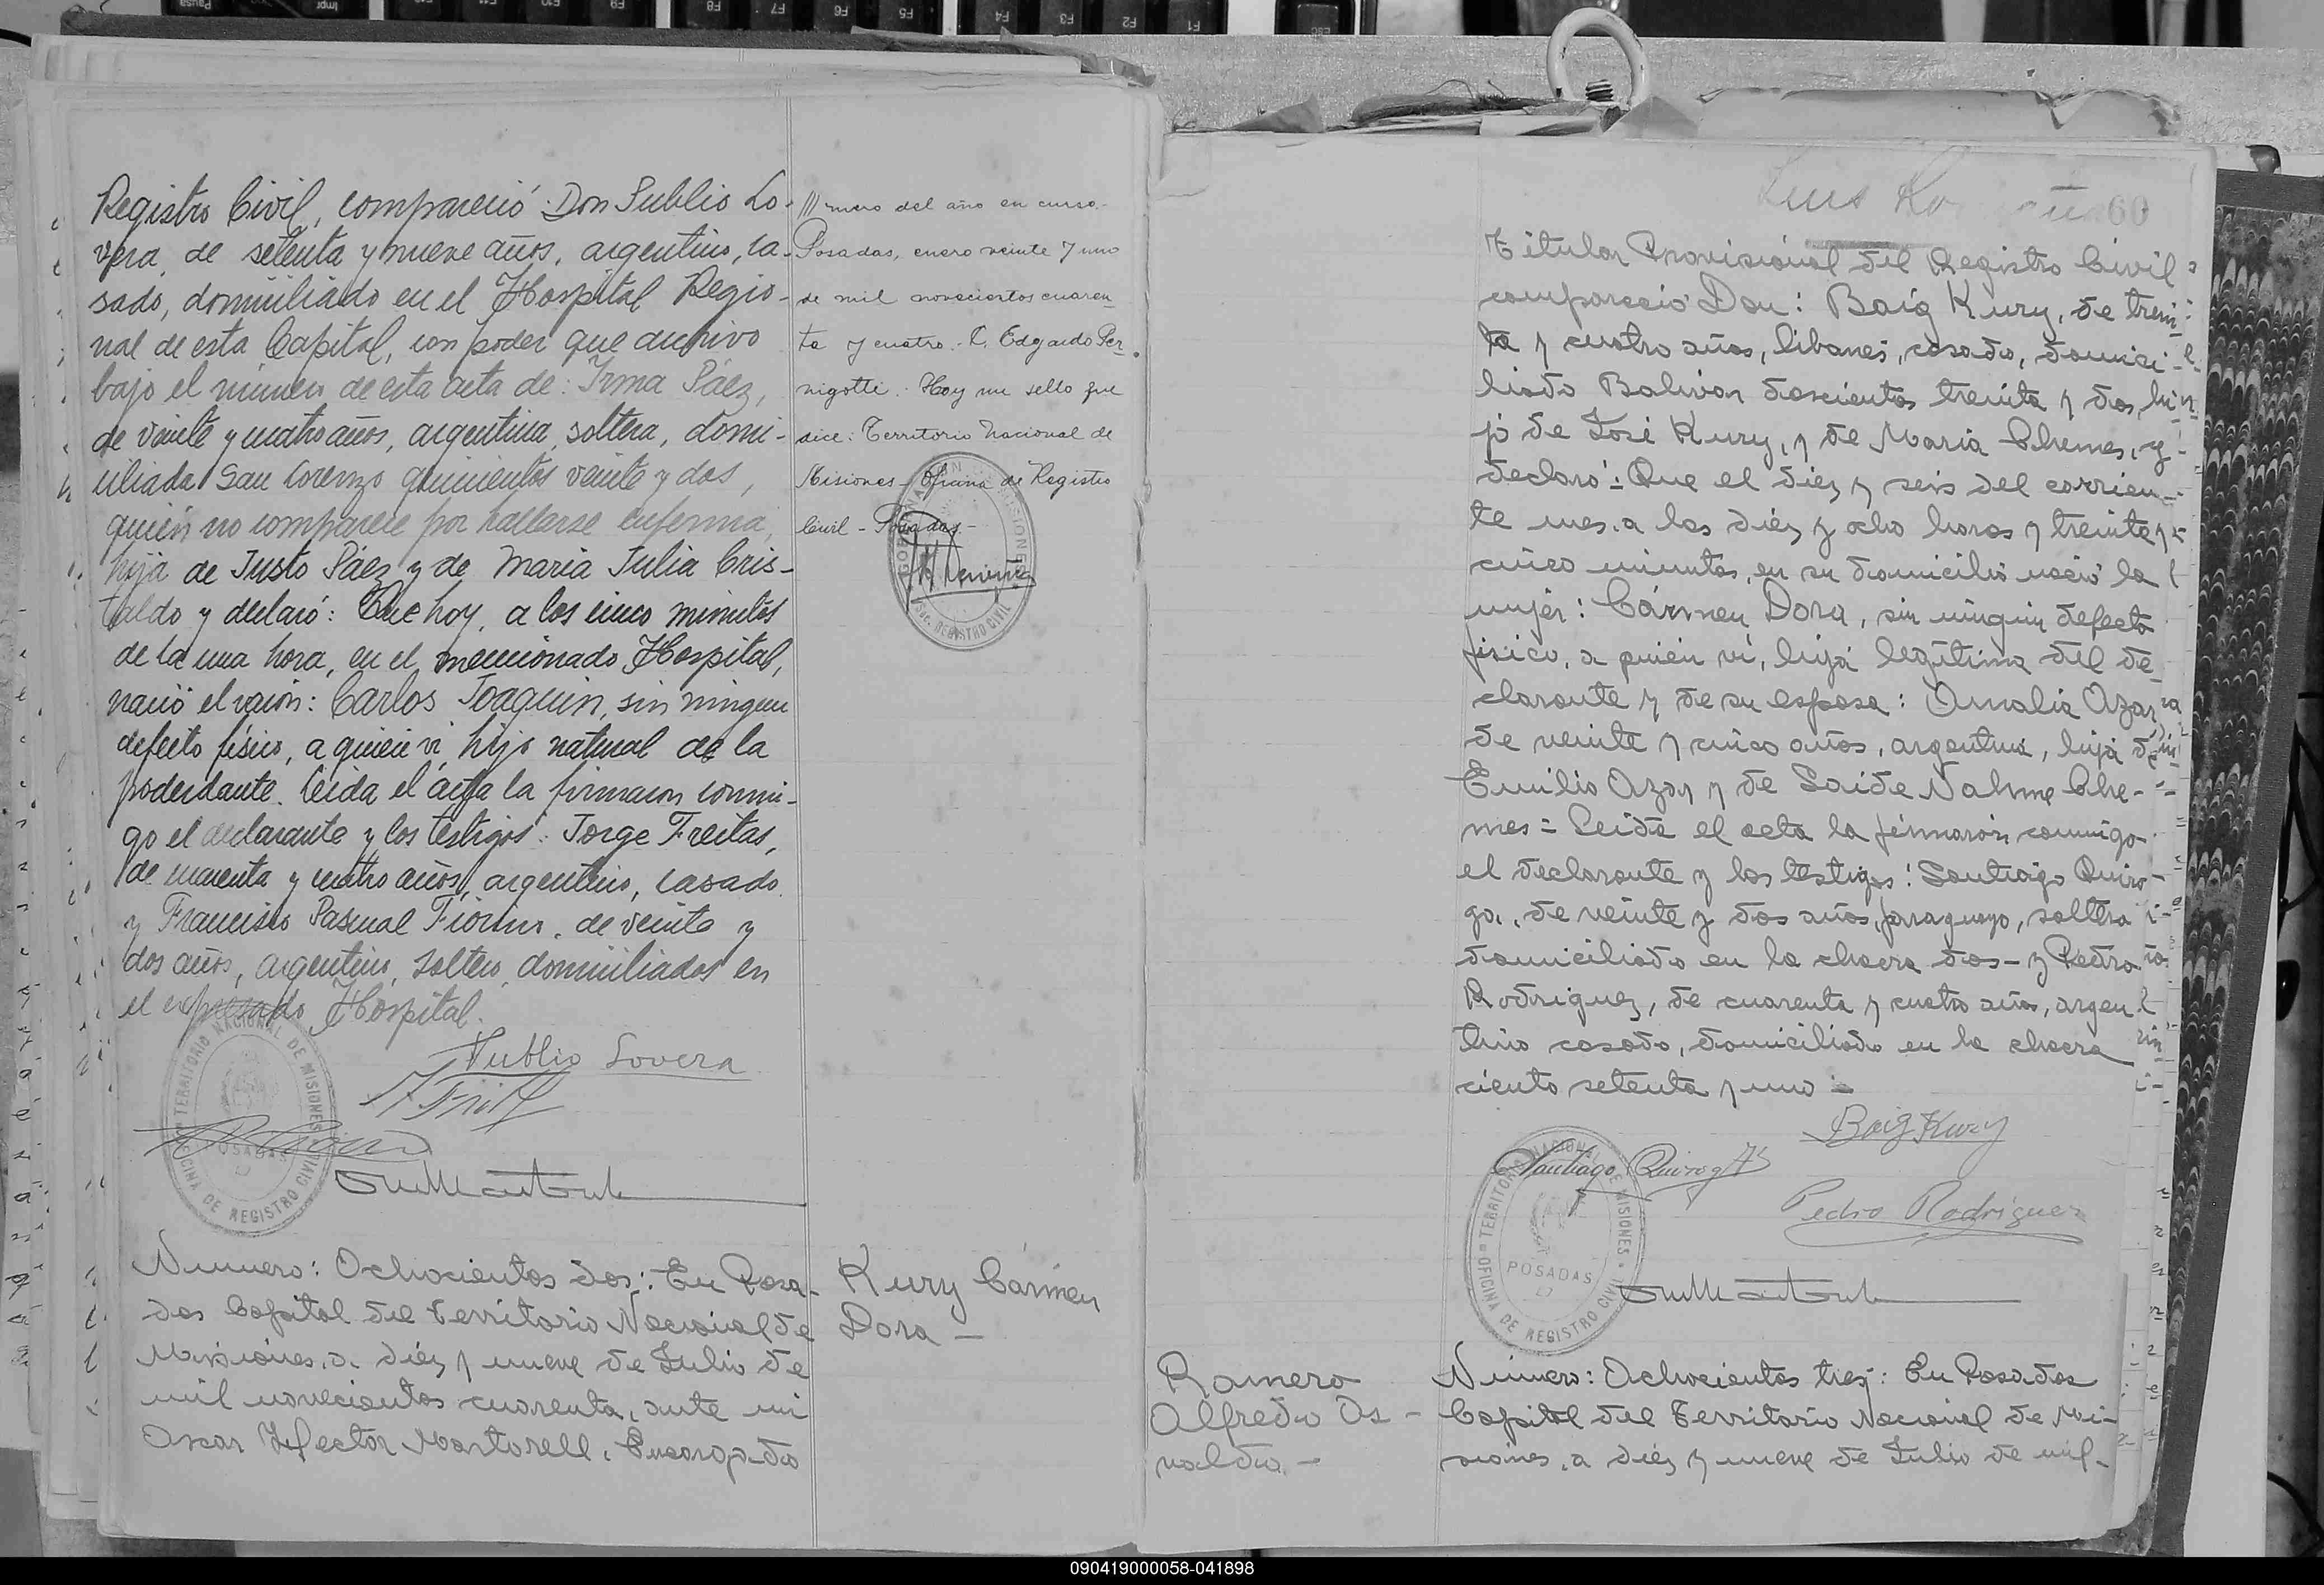 Registro Civil, compareció: Don Publio Lo-
vera, de setenta y nueve años, argentino, ca-
sado, domiciliado en el Hospital Regio-
nal de esta Capital, con poder que archivo
bajo el número de esta acta de: Irma Páez,
de veinte y cuatro años, argentina, soltera, domi-
ciliada San Lorenzo quinientos veinte y dos,
quién no comparece por hallarse enferma,
hija de Justo Páez y de María Julia Cris-
taldo y declaró: Que hoy, a los cinco minutos
de la una hora, en el mencionado Hospital,
nació el varón: Carlos Joaquin, sin ningun
defecto físico, a quien vi, hijo natural de la
poderdante. Leida el acta la firmaron conmi-
go el declarante y los testigos: Jorge Freitas,
de cuarenta y cuatro años, argentino, casado
y Francisco Pascual Fiorino, de veinte y
dos años, argentino, soltero, domiciliados en
el expresado Hospital.
Publio Lovera
TERRITORIO NACIONAL DE MISIONES
POSADAS
OFICINA DE REGISTRO CIVIL
/// mero del año en curso.-
Posadas, enero veinte y uno
de mil novecientos cuaren-
ta y cuatro.- Edgardo Per-
nigotti: Hay un sello que
dice: Territorio Nacional de
Misiones - Oficina de Registro
Civil - Posadas.-
REGISTRO CIVIL
Numero: Ochocientos dos: En Posa-
das Capital del Territorio Nacional de
Misiones, a diéz y nueve de Julio de
mil novecientos cuarenta, ante mi
Oscar Hector Martorell, Encargado
Kury Cármen
Dora -
Luis
60
Titular Provisional del Registro Civil
compareció Don: Baig Kury, de trein-
ta y cuatro años, libanés, casado, domici-
liado Bolivar doscientos treinta y dos, hi-
jo de José Kury, y de Maria Chemes, y
declaró: Que el diéz y seis del corrien-
te mes, a las diéz y ocho horas y treinta y
cinco minutos, en su domicilio nació la
mujér: Cármen Dora, sin ningún defecto
físico, a quién ví, hija legítima del de-
clarante y de su esposa: Amalia Azar,
de veinte y cinco años, argentina, hija de
Emilio Azar y de Saide Nahme Che-
mes = Leida el acta la firmarón conmigo
el declarante y los testigos: Santiago Quiro-
ga, de veinte y dos años, paraguayo, soltero
domiciliado en la chacra dos - y Pedro
Rodriguez, de cuarenta y cuatro años, argen-
tino casado, domiciliado en la chacra
ciento setenta y uno =
Baig Kury
Santiago Quiroga
Pedro Rodriguez
TERRITORIO NACIONAL DE MISIONES
POSADAS
OFICINA DE REGISTRO CIVIL
Romero
Alfredo Os-
valdo.-
Número: Ochocientos tres: En Posadas
Capital del Territorio Nacional de Mi-
siones, a diéz y nueve de Julio de mil-
090419000058-041898